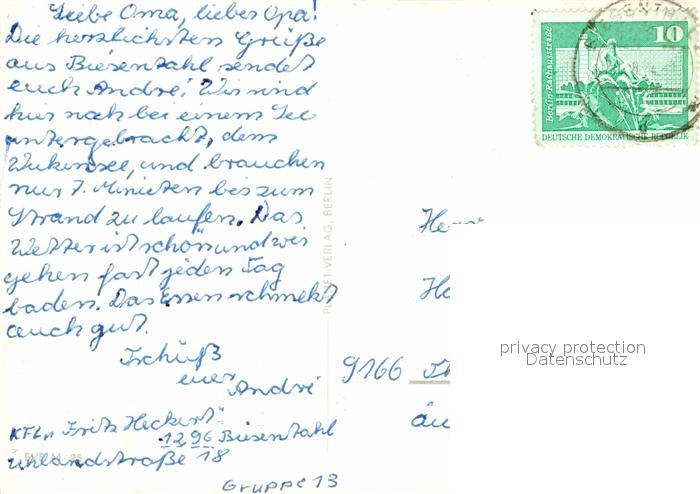 Liebe Oma, lieber Opa!
Die herzlichsten Grüße
aus Biesentahl sendet
euch André! Wir sind
hier nah bei einem See
untergebracht, dem
Wukensee, und brauchen
nur 7. Minieten bis zum
Strand zu laufen. Das
Wetter ist schön und wir
gehen fast jeden Tag
baden. Das Essen schmekt
auch gut.
Tschüß
euer
André
KFL "Fritz Heckert"
1296 Biesentahl
Uhlandstraße 18
Gruppe 13
PLANET VERLAG, BERLIN
Berlin, Rathausstraße
10
DEUTSCHE DEMOKRATISCHE REPUBLIK
9166
privacy protection
Datenschutz